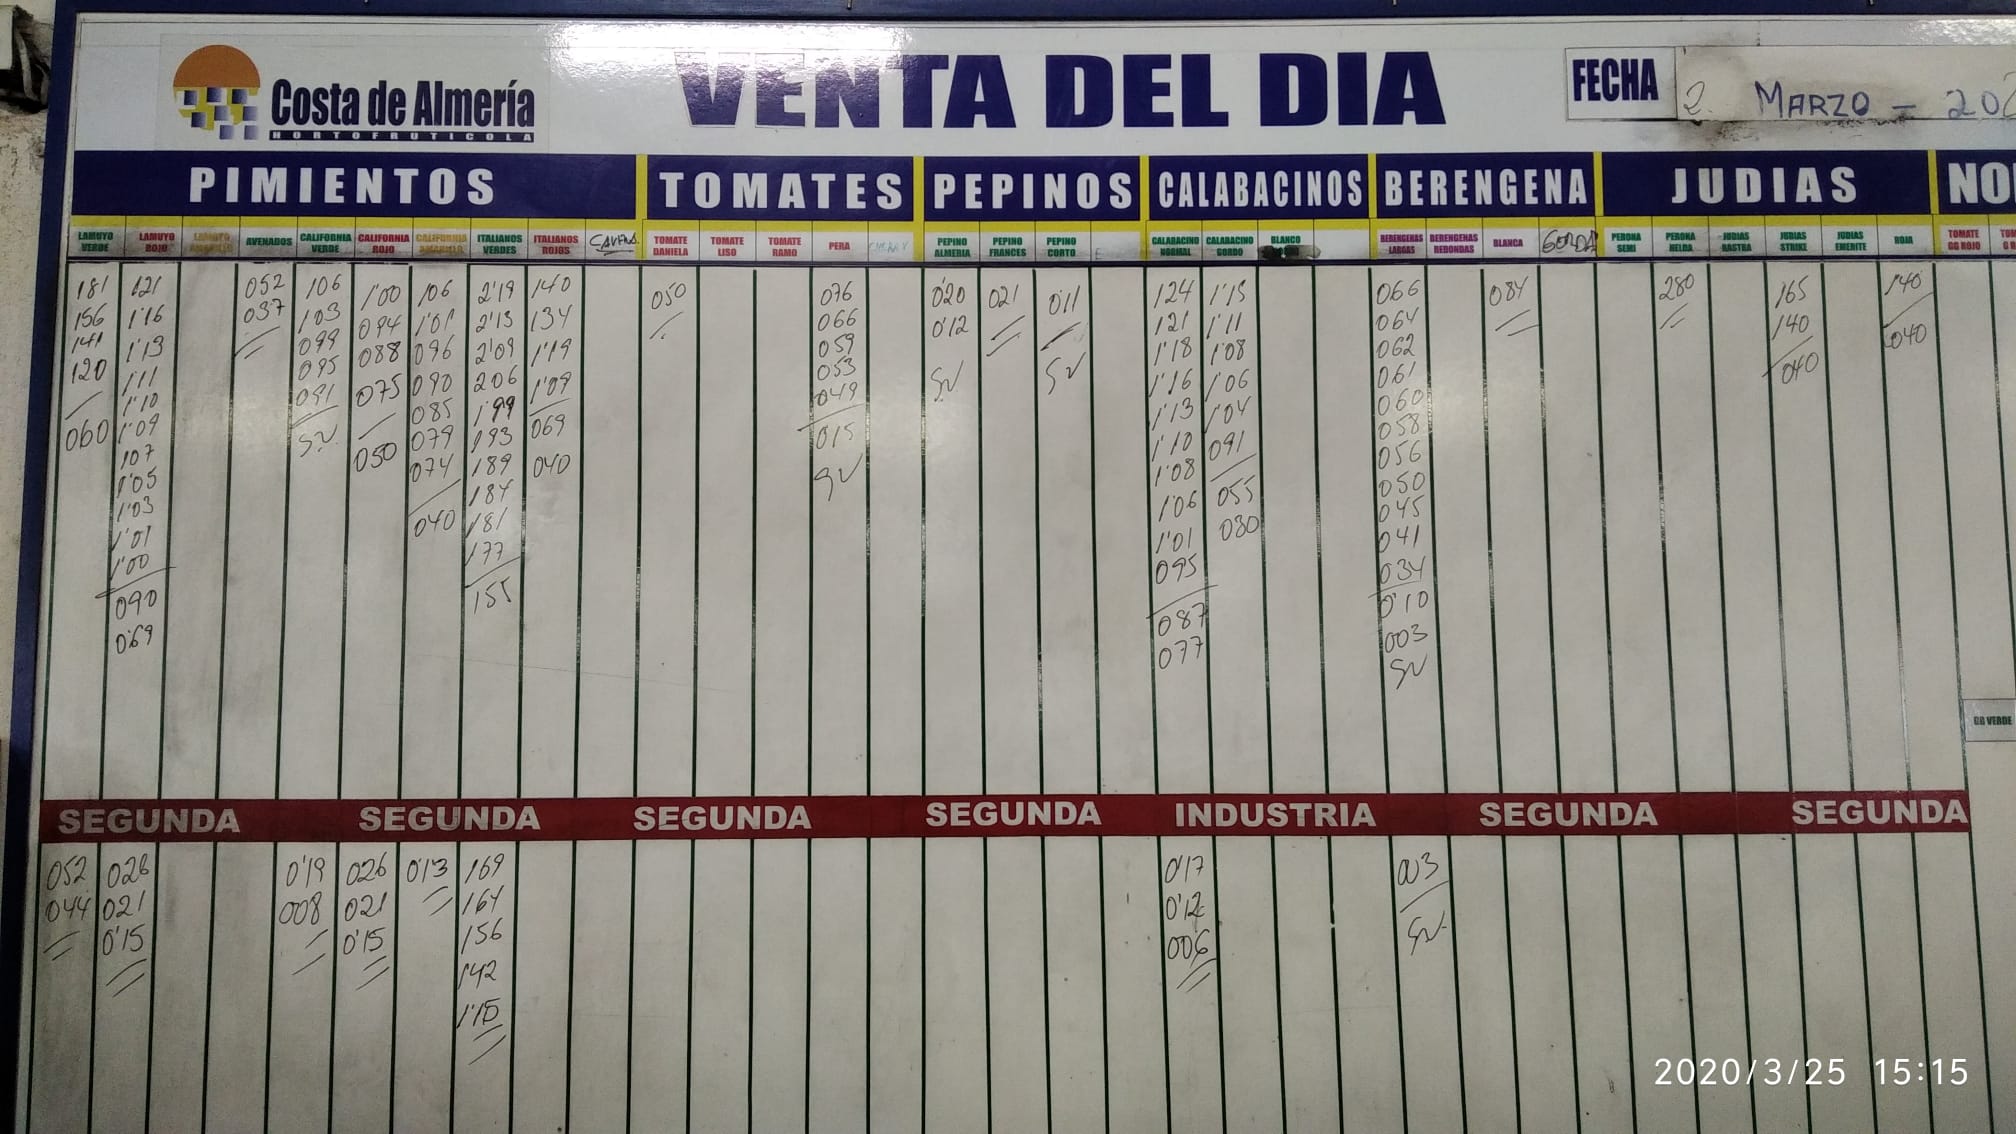 Costa de Almería
HORTOFRUTICOLA
VENTA DEL DIA
FECHA 2 MARZO - 202
PIMIENTOS TOMATES PEPINOS CALABACINOS BERENGENA JUDIAS NO
LAMUYO VERDE LAMUYO ROJO LAMUYO AMARILLO AVENADOS CALIFORNIA VERDE CALIFORNIA ROJO CALIFORNIA AMARILLO ITALIANOS VERDES ITALIANOS ROJOS TOMATE DANIELA TOMATE LISO TOMATE RAMO PERA PEPINO ALMERIA PEPINO FRANCES PEPINO CORTO E CALABACINO NORMAL CALABACINO GORDO BLANCO BERENGENAS LARGAS BERENGENAS REDONDAS BLANCA GORDA PERONA SEMI PERONA NELDA JUDIAS RASTRA JUDIAS STRIKE JUDIAS EMERITE ROJA TOMATE GG ROJO
181 121 052 106 1'00 106 2'19 140 050 076 0'20 021 0'11 124 1'15 066 084 280 165 140
156 1'16 037 103 094 1'01 2'13 134 066 0'12 SV SV 121 1'11 064 140 040
141 1'13 099 088 096 2'09 1'19 059 SV 1'18 1'08 062 040
120 1'11 095 075 090 206 1'09 053 1'16 1'06 061
060 1'10 091 050 085 199 069 049 1'13 1'04 060
1'09 SV 079 193 040 015 1'10 091 058
107 074 189 SV 1'08 055 056
1'05 040 184 1'06 030 050
1'03 181 1'01 045
1'01 177 095 041
1'00 155 087 034
090 077 0'10
069 003
SV
GG VERDE
SEGUNDA SEGUNDA SEGUNDA SEGUNDA INDUSTRIA SEGUNDA SEGUNDA
052 026 0'19 026 0'13 169 0'17 003
044 021 008 021 164 0'12 SV
0'15 0'15 156 006
142
1'15
2020/3/25 15:15